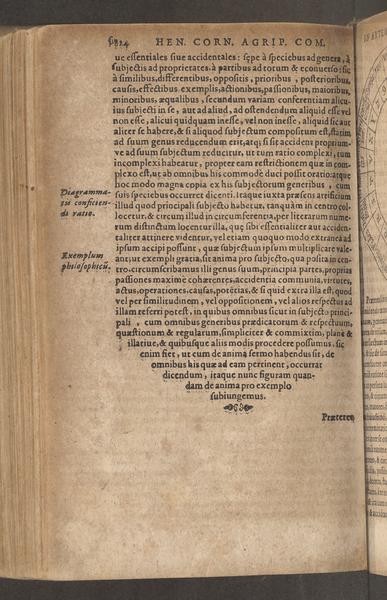 HEN. CORN. AGRIP. COM.
ue essentiales siue accidentales: sępe à speciebus ad genera, à
subiectis ad proprietates, à partibus ad totum & econuerso: sic
à similibus, differentibus, oppositis, prioribus, posterioribus,
causis, effectibus, exemplis, actionibus, passionibus, maioribus,
minoribus, æqualibus, secundum variam conferentiam alicu-
ius subiecti in se, aut ad aliud, ad ostendendum aliquid esse vel
non esse, alicui quidquam inesse, vel non inesse, aliquid sic aut
aliter se habere, & si aliquod subiectum compositum est, statim
ad suum genus reducendum erit, atq; si sit accidens proprium-
ve ad suum subiectum reducitur, ut tum ratio complexi, tum
incomplexi habeatur, propter eam restrictionem quæ in com-
plexo est, ut ab omnibus his commodè duci possit oratio: atque
hoc modo magna copia ex his subiectorum generibus, cum
suis speciebus occurret dicenti. itaque iuxta præsens artificium
illud quod principali subiecto habetur, tanquam in centro col-
locetur, & circum illud in circumferentia, per literarum nume-
rum distinctum locentur illa, quę sibi essentialiter aut acciden-
taliter attinere videntur, vel etiam quoquo modo extranea ad
ipsum accipi possunt, quæ subiectum ipsum multiplicare vale-
ant; ut exempli gratia, sit anima pro subiecto, qua posita in cen-
tro, circumscribamus illi genus suum, principia partes, proprias
passiones maximè cohærentes, accidentia communia, virtutes,
actus, operationes, causas, potētias, & si quid extra illa est, quod
vel per similitudinem, vel oppositionem, vel alios respectus ad
illam referri potest, in quibus omnibus sicut in subiecto princi-
pali, cum omnibus generibus prædicatorum & respectuum,
quæstionum & regularum, simpliciter & commixtim, planè &
illatiue, & quibusque aliis modis procedere possumus. sic
enim fiet, ut cum de anima sermo habendus sit, de
omnibus his quæ ad eam pertinent, occurrat
dicendum, itaque nunc figuram quan-
dam de anima pro exemplo
subiungemus.
Præterea
Diagramma-
tis conficien-
di ratio.
Exemplum
philosophicũ.